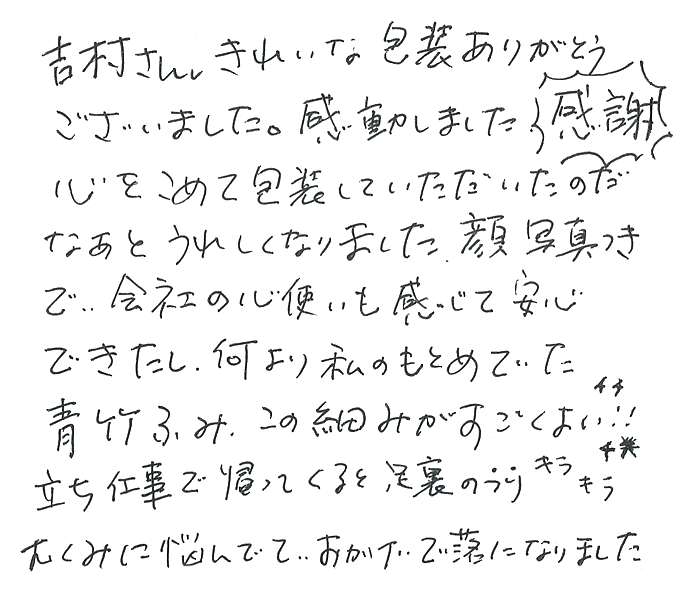 吉村さん、きれいな包装ありがとう
ございました。感動しました 感謝
心をこめて包装していただいたのだ
なあとうれしくなりました 顔写真つき
で‥会社の心使いも感じて安心
できたし.何より私のもとめていた
青竹ふみ.この細みがすごくよい!!
立ち仕事で帰ってくると足裏のうら キラキラ
むくみに悩んでて‥おかげで落になりました